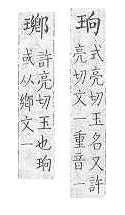 珦
式亮切玉名又許
亮切文一重音一
許亮切玉也珦
或从鄉文一